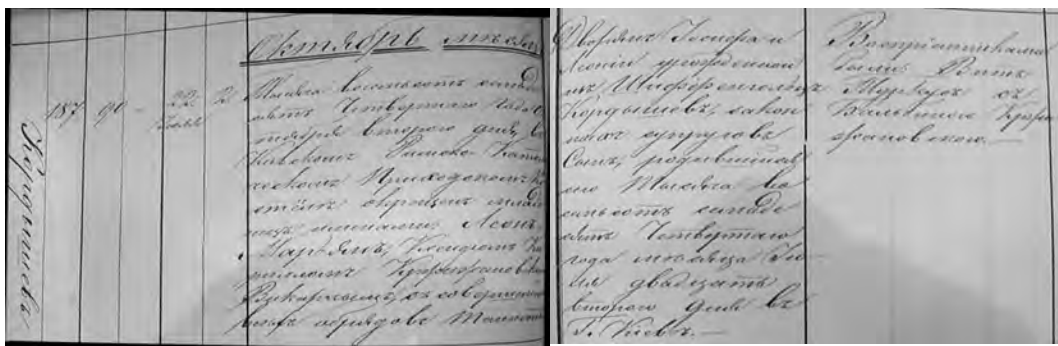 Кордышевъ
187 90 — 22 Іюля 2
Октябрь мѣсяцъ
Тысяча восемьсотъ семьде
сятъ Четвертаго года Ок
тября втораго дня, въ
Кіевскомъ Римско-Като
лическомъ Приходскомъ Ко
стёлѣ окрещенъ младе
нецъ именами: Леонъ,
Марьянъ, Ксендзомъ
Крыжановскимъ
Викарнымъ, съ совершеніемъ
всѣхъ обрядовъ Таинства
Дворянъ Іосифа и
Леоніи урожденной
изъ
Кордышевъ, закон
ныхъ супруговъ
Сынъ, родившійся
сего Тысяча во
семьсотъ семьде
сятъ Четвертаго
года мѣсяца Ію
ля двадцать
втораго дня въ
Г. Кіевѣ. —
Воспріемниками
были: Витъ
съ
Крыжановскою. —